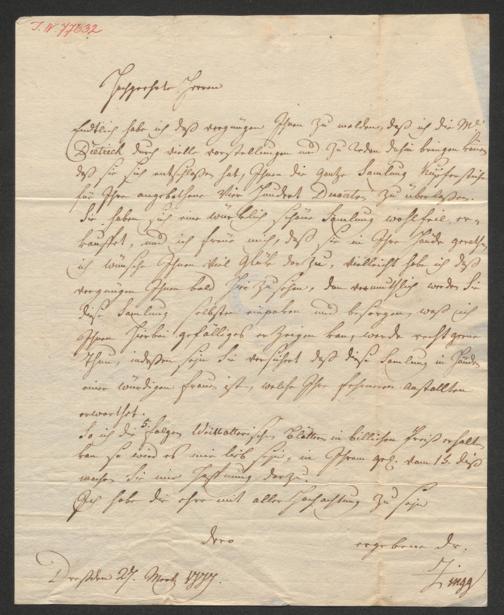 J.N. 77632
Hochgeehrte Herren
Endtlich habe ich daß vergnügen Ihnen zu melden, daß ich die Md.
Dietrich durch vielle vorstellungen und zu Reden dahin bringen können
daß sie sich entschloßen hat, Ihnen die ganze Samlung Kupferstiche
für Ihre angebothene Vier Hundert Ducaten zu überlaßen.
Sie haben sich eine würklich schöne Samlung wohlfeil er-
kauffet, und ich freue mich, daß sie in Ihre Hände gerathen,
ich wünsche Ihnen viel Glück darzu, vielleicht habe ich daß
vergnügen Ihnen bald hier zu sehen, den vermuthlich werden Sie
diese Samlung selbsten einpaken und besorgen, waß ich
Ihnen hierbei gefälliges erzeigen kan, werde recht gerne
thun, indeßen sein Sie versichert daß diese Samlung in Händen
einer würdigen Frauen ist, welche Ihre ferneren Anstallten
erwarthet.
So ich die 5 folgen Weirotterischen Blätter in billichen Preiß erhalten
kan so wird es mir lieb sein, in Ihrem vom 15. dieß
machen Sie mir Hoffnung darzu.
Ich habe die ehre mit aller Hochachtung zu sein
Dero
ergebene dr.
Zingg
Dresden 27. Mertz 1777.